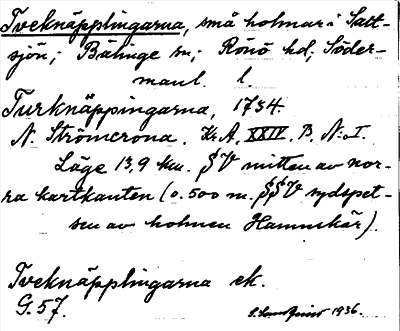 Tveknäpplingarna, små holmar i Satt-
sjön; Bälinge sn; Rönö hd, Söder-
manl. l.
Turknäppingarna, 1734.
N. Strömcrona. Kr.A. XXIV. B. N:o I.
Läge 13,9 km. SV mitten av nor-
ra kartkanten (0.500 m. SSV sydspet-
sen av holmen Hamnskär).
Tveknäpplingarna ek.
G. 57.
1936.